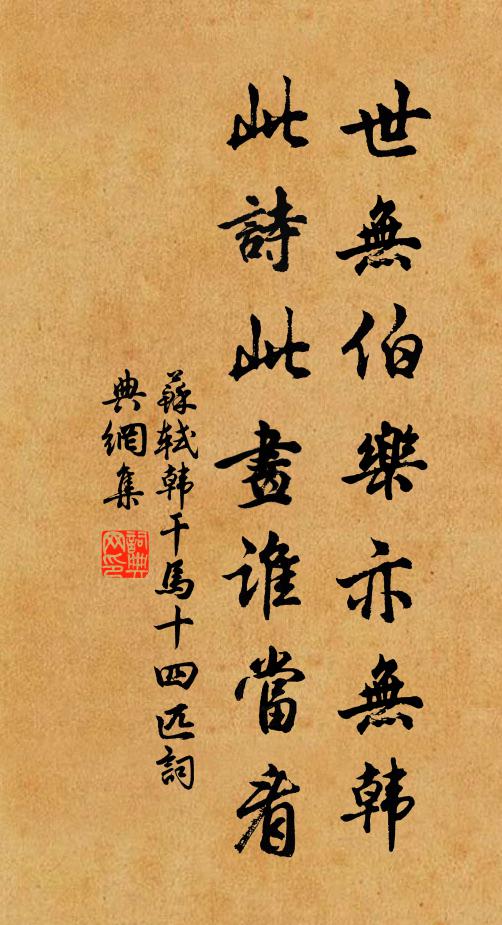 世無伯樂亦無韓
此詩此畫誰當看
蘇軾韓干馬十四匹詞
典網集
詞典
网印